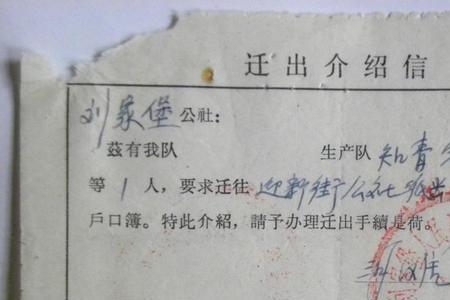 迁出介绍信
刘家堡公社：
茲有我队 生产队 知青
等1人，要求迁往 迎新街公社
戶口簿。特此介紹，請予办理迁出手續是荷。